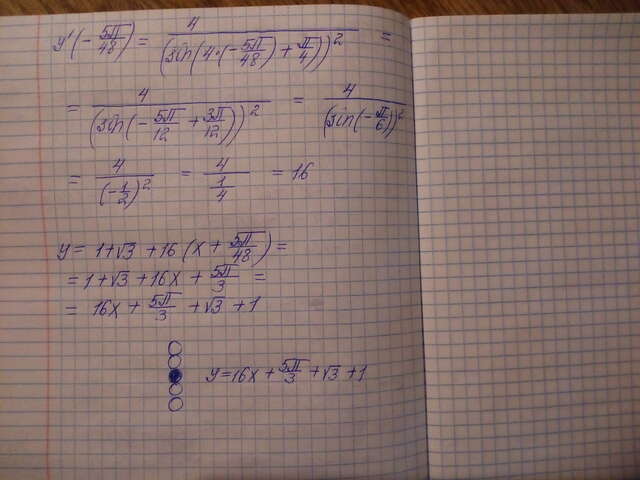 y'(-5π/48) = 4/(sin(4·(-5π/48)+π/4))² =
= 4/(sin(-5π/12+3π/12))² = 4/(sin(-π/6))²
= 4/(-1/2)² = 4/(1/4) = 16
y = 1+√3 +16 (x + 5π/48) =
= 1+√3 +16x + 5π/3 =
= 16x + 5π/3 + √3 + 1
y=16x + 5π/3 + √3 + 1